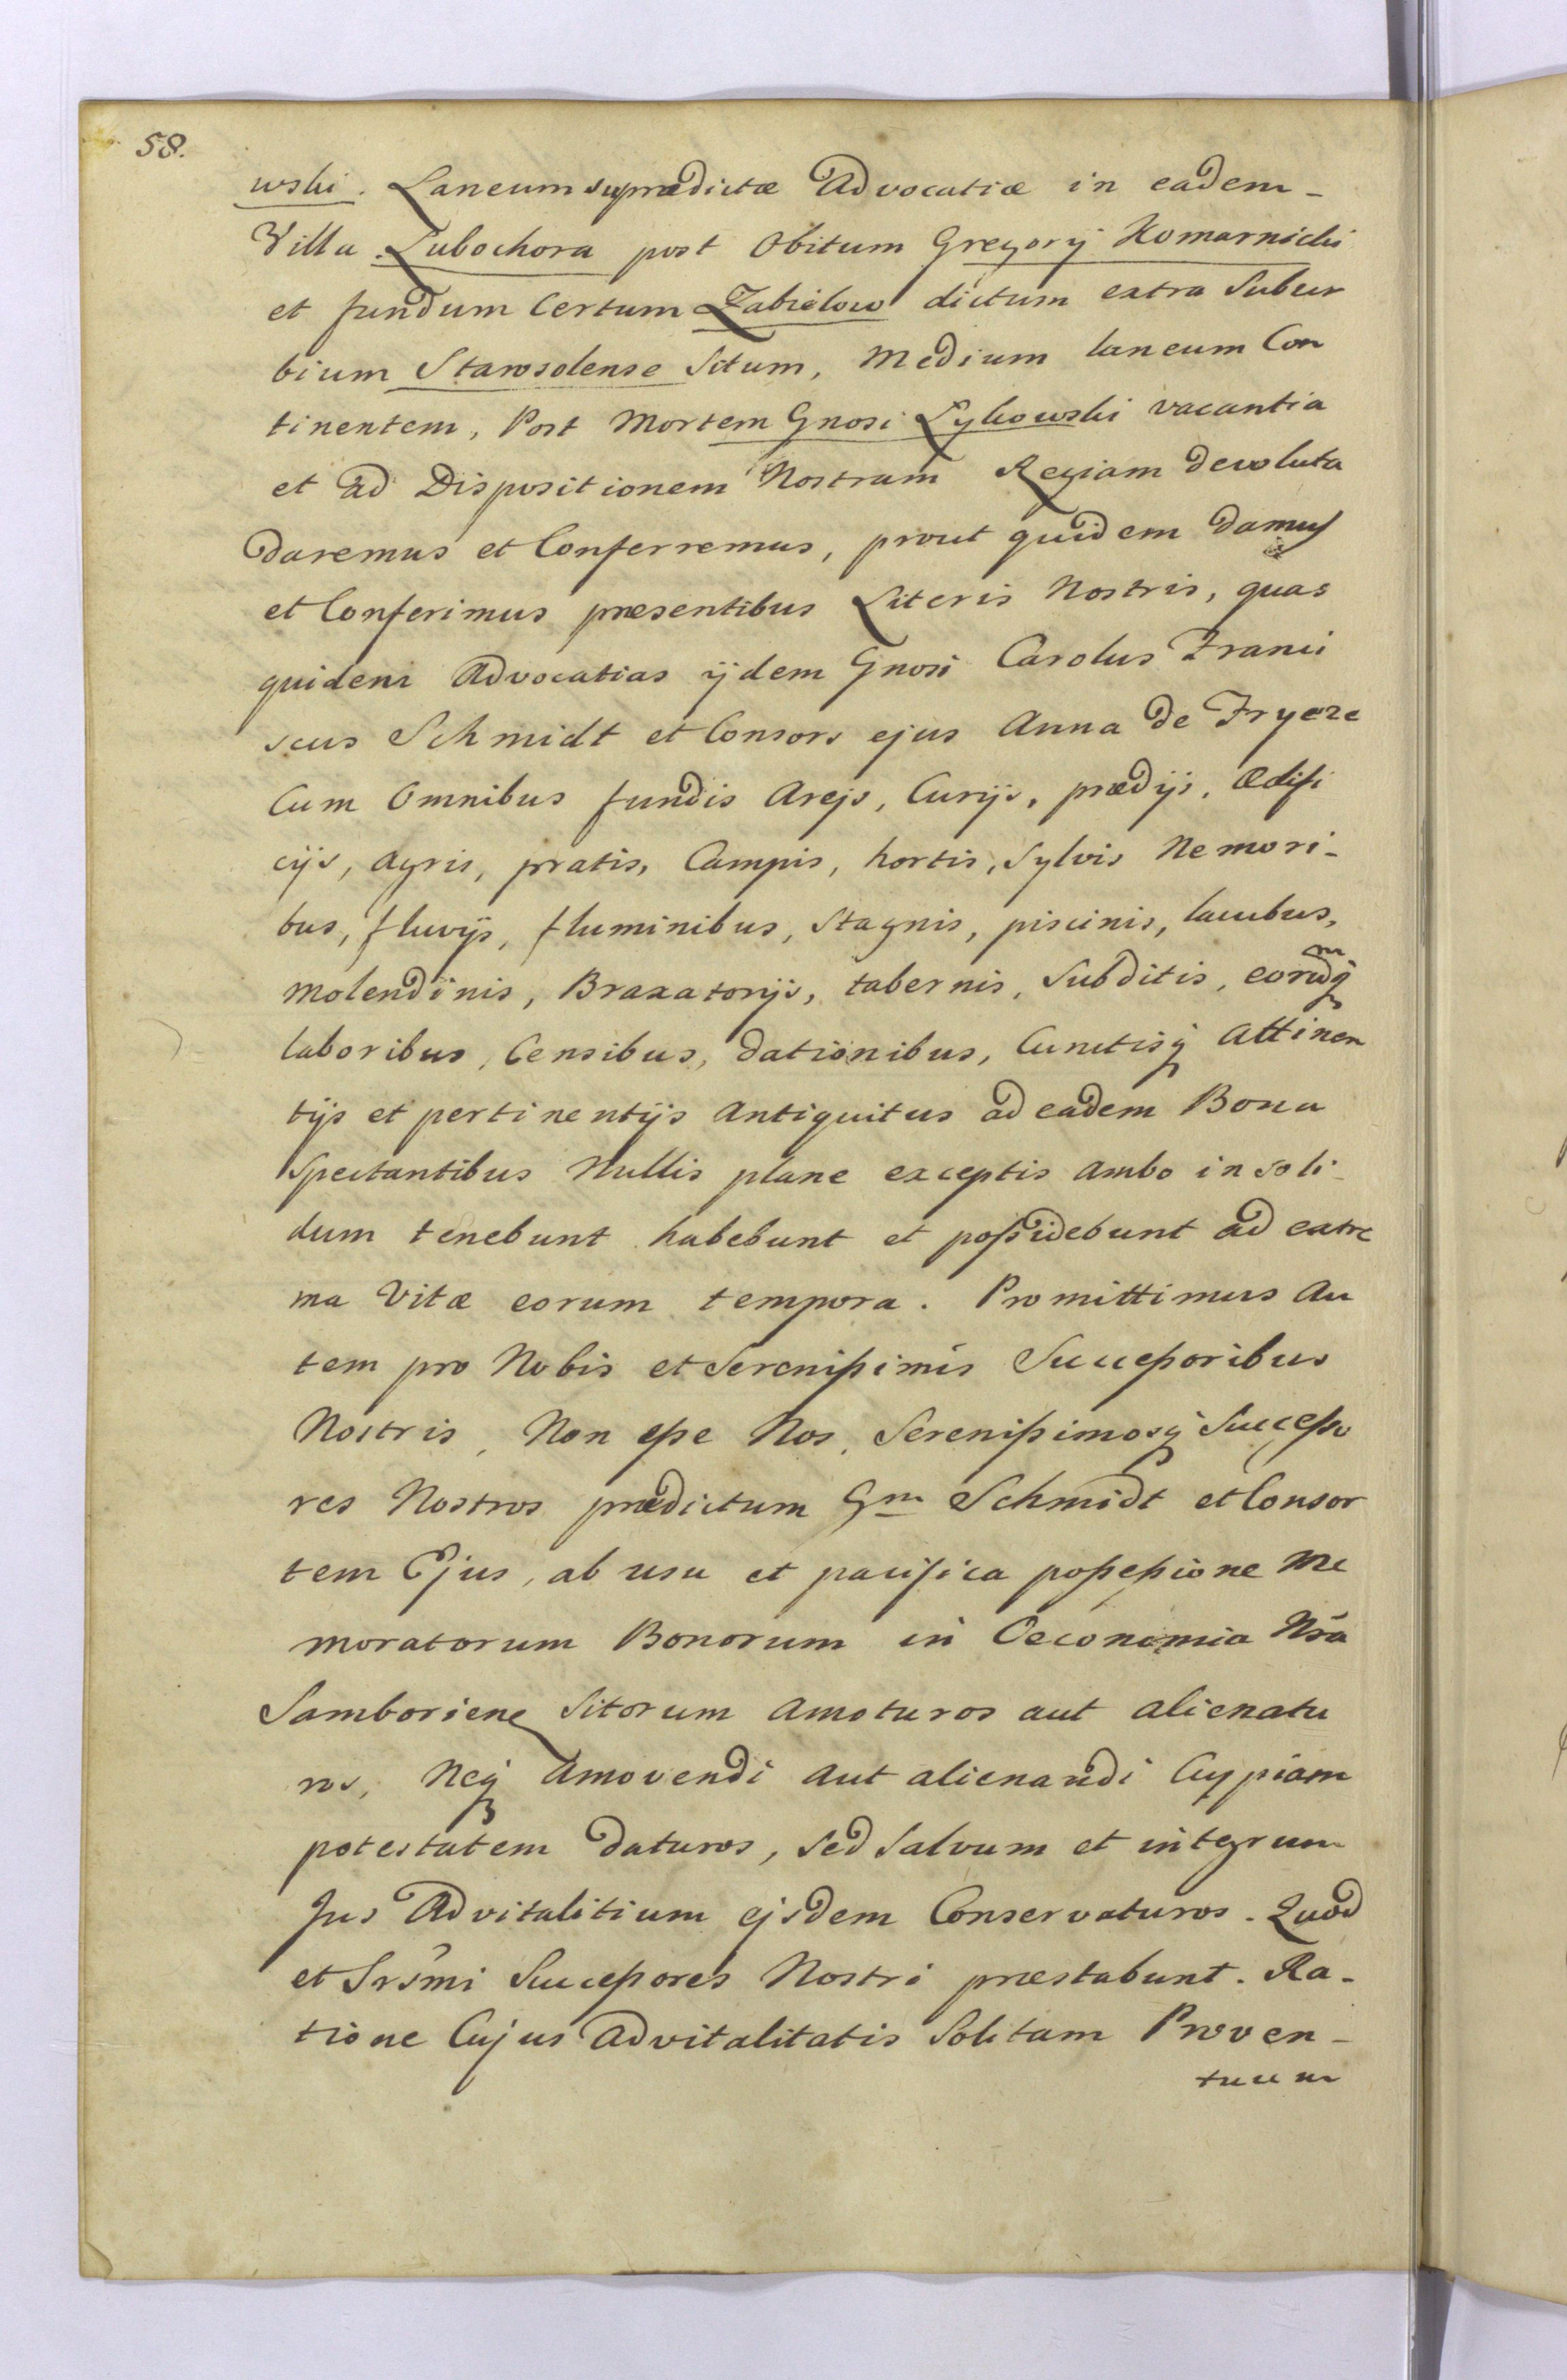 58.
wski. Laneum supradictæ Advocatiæ in eadem-
Villa. Lubochora post Obitum Gregorÿ Komarnicki
et fundum Certum Zabielow dictum extra Subur
bium Starosolense Situm, Medium laneum Con
tinentem, Post Mortem Gnosi Lykowski vacantia
et ad Dispositionem Nostram Regiam devoluta
daremus et Conferremus, prout quidem damus
et Conferimus præsentibus Literis Nostris, quas
quidem Advocatias ÿdem Gnosi Carolus Franci
scus Schmidt et Consors ejus Anna de Fryeze
Cum Omnibus fundis Arejs, Curÿs, prædÿs, Ædifi
cÿs, Agris, pratis, Campis, hortis, Sylvis Nemori-
bus, fluvÿs, fluminibus, Stagnis, piscinis, lacubus,
molendinis, Braxatorÿs, tabernis, Subditis, eorumdq
laboribus, Censibus, dationibus, Cunctisq Attinen
tÿs et pertinentÿs Antiquitus ad eadem Bona
Spectantibus Nullis plane exceptis ambo in soli-
dum tenebunt habebunt et possidebunt ad extre
ma Vitæ eorum tempora. Promittimus Au
tem pro Nobis et Serenissimis Successoribus
Nostris, Non esse Nos, Serenissimosq Successo
res Nostros prædictum Gm Schmidt et Consor
tem Ejus, ab usu et pacifica possessione Me
moratorum Bonorum in Oeconomia Nrã
Samboriene Sitorum amoturos aut alienatu
ros, Neq Amovendi Aut alienandi Cuypiam
potestatem daturos, Sed Salvum et integrum
Jus Advitalitium ejsdem Conservaturos. Quod
et Srsmi Successores Nostri præstabunt. Ra-
tione Cujus Advitalitatis Solitam Proven-
tuum